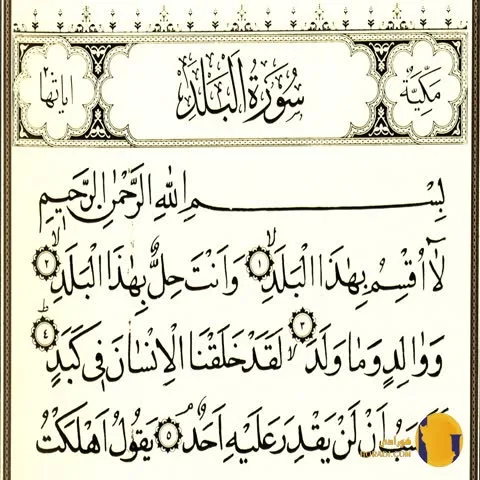 مَكِّيَّة سُورَةُ الْبَلَدِ اٰيَاتُهَا ٢٠
بِسْمِ اللهِ الرَّحْمٰنِ الرَّحِيمِ
لَآ اُقْسِمُ بِهٰذَا الْبَلَدِ ۙ ١ وَاَنْتَ حِلٌّ بِهٰذَا الْبَلَدِ ۙ ٢
وَوَالِدٍ وَمَا وَلَدَ ۙ ٣ لَقَدْ خَلَقْنَا الْاِنْسَانَ فِى كَبَدٍ ۜ ٤
اَنْ لَنْ يَقْدِرَ عَلَيْهِ اَحَدٌ ۘ ٥ يَقُولُ اَهْلَكْتُ